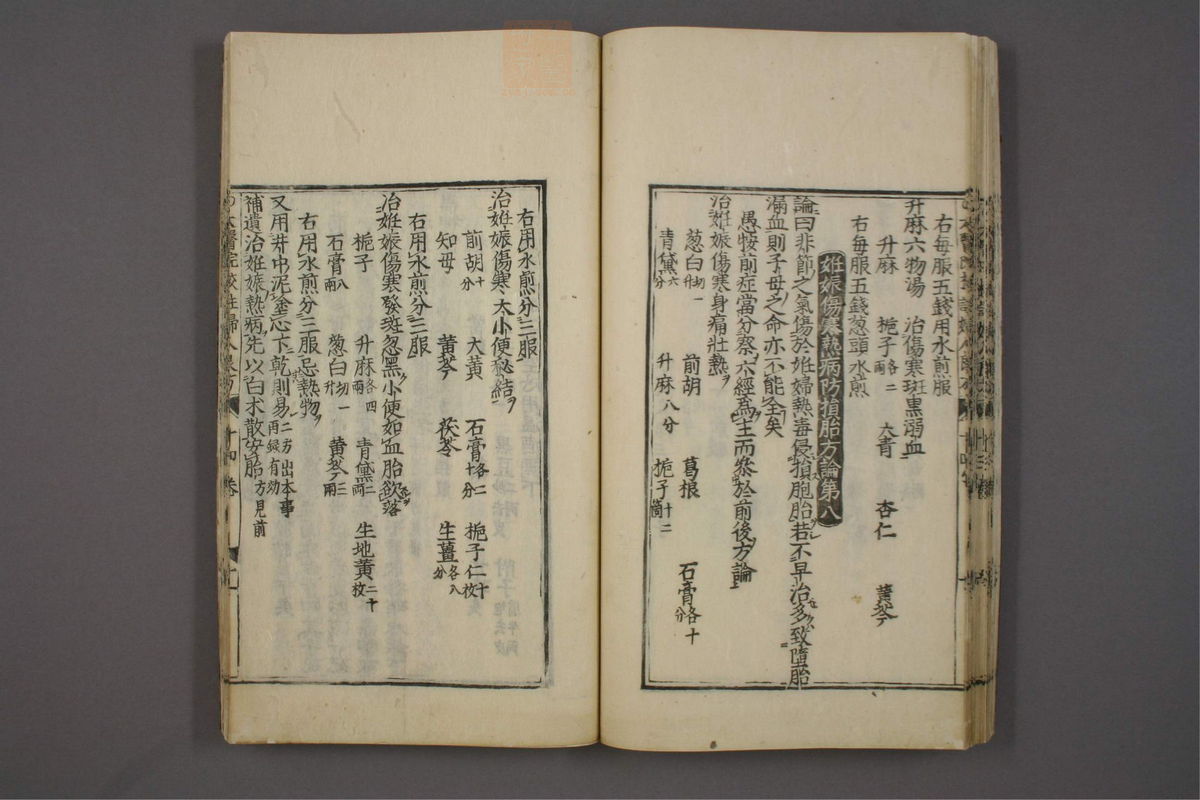 右每服五錢用水煎服
升麻六物湯　治傷寒斑黒溺血
升麻　梔子各二兩　大青　杏仁　黄芩
右每服五錢葱頭水煎
姙娠傷寒熱病防損胎方論第八
論曰非節之氣傷於姙婦熱毒侵損胞胎若不早治多致墮胎
漏血則子母之命亦不能全矣
愚按前症當分察六經爲主而叅於前後方論
治姙娠傷寒身痛壯熱
葱白切一升　前胡　葛根　石膏各十分
青黛六分　升麻八分　梔子十二箇
右用水煎分三服
治姙娠傷寒大小便秘結
前胡十分　大黄　石膏各二十分　梔子仁十枚
知母　黄芩　茯苓　生薑各八分
右用水煎分三服
治姙娠傷寒發斑忽黑小便如血胎欲落
梔子　升麻各四兩　青黛二兩　生地黄二十枚
石膏八兩　葱白切一升　黄芩三兩
右用水煎分三服忌熱物
又用井中泥塗心下乾則易二方出本事再録有効
補遺治姙娠熱病先以白术散安胎方見前
太醫院校註婦人良方　十四卷